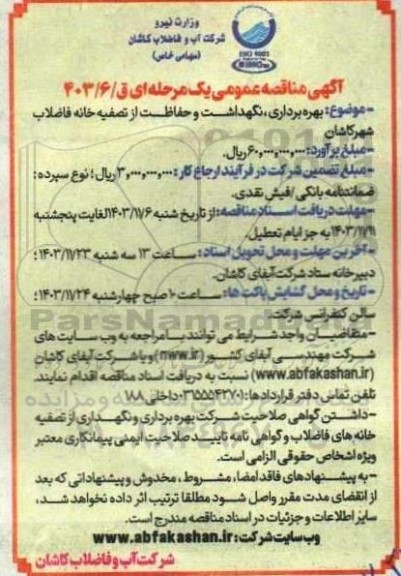 وزارت نیرو
شرکت آب و فاضلاب کاشان
(سهامی خاص)
ISO 9001
آگهی مناقصه عمومی یک مرحله ای ق/۴۰۳/۶
-موضوع: بهره برداری، نگهداشت و حفاظت از تصفیه خانه فاضلاب
شهر کاشان
-مبلغ برآورد: ۶۰,۰۰۰,۰۰۰,۰۰۰ ریال.
-مبلغ تضمین شرکت در فرآیند ارجاع کار: ۳,۰۰۰,۰۰۰,۰۰۰ ریال؛ نوع سپرده:
ضمانتنامه بانکی/فیش نقدی.
-مهلت دریافت اسناد مناقصه: از تاریخ شنبه ۱۴۰۳/۱۱/۶ لغایت پنجشنبه
۱۴۰۳/۱۱/۱۱ به جز ایام تعطیل.
-آخرین مهلت و محل تحویل اسناد: ساعت ۱۳ سه شنبه ۱۴۰۳/۱۱/۲۳؛
دبیرخانه ستاد شرکت آبفای کاشان.
-تاریخ و محل گشایش پاکت ها: ساعت ۱۰ صبح چهارشنبه ۱۴۰۳/۱۱/۲۴؛
سالن کنفرانس شرکت.
-متقاضیان واجد شرایط می توانند با مراجعه به وب سایت های
شرکت مهندسی آبفای کشور (nww.ir) و یا شرکت آبفای کاشان
(www.abfakashan.ir) نسبت به دریافت اسناد مناقصه اقدام نمایند.
تلفن تماس دفتر قراردادها: ۰۳۱۵۵۵۴۳۷۰۱ داخلی ۱۸۸
-داشتن گواهی صلاحیت شرکت بهره برداری و نگهداری از تصفیه
خانه های فاضلاب و گواهی نامه تایید صلاحیت ایمنی پیمانکاری معتبر
ویژه اشخاص حقوقی الزامی است.
-به پیشنهادهای فاقد امضا، مشروط، مخدوش و پیشنهاداتی که بعد
از انقضای مدت مقرر واصل شود مطلقا ترتیب اثر داده نخواهد شد،
سایر اطلاعات و جزئیات در اسناد مناقصه مندرج است.
وب سایت شرکت: www.abfakashan.ir
شرکت آب و فاضلاب کاشان
ParsNamad